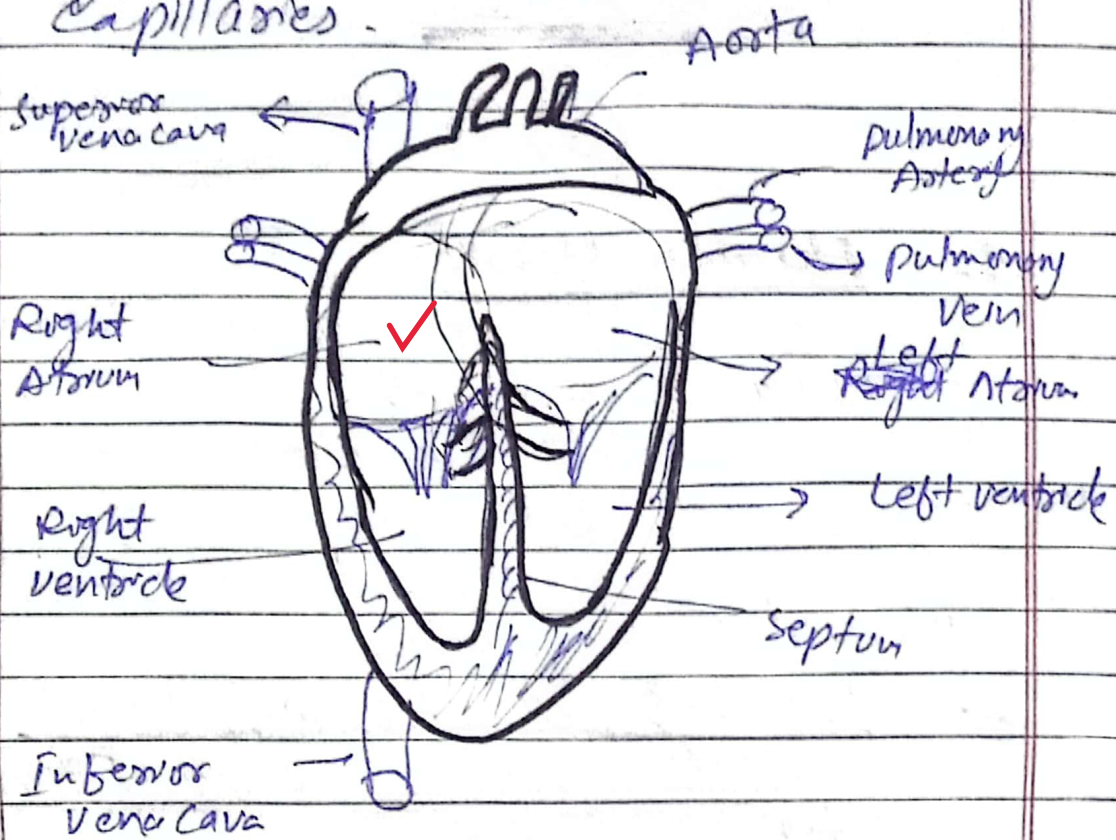 Capillaries.
Aorta
Superior
vena cava
Pulmonary
Artery
Pulmonary
vein
Right
Atrium
Left
Right Atrium
Left ventricle
Right
ventricle
Septum
Inferior
vena cava